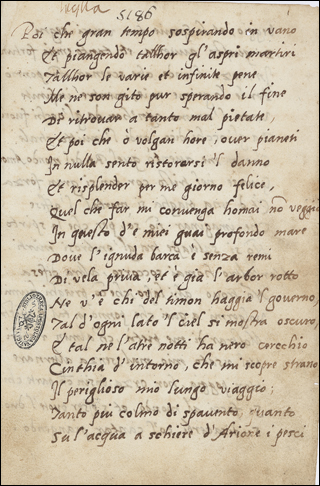 5186
Poi che gran tempo sospirando in vano
Et piangendo tallhor gl'aspri martiri
Tallhor le varie et infinite pene
Me ne son gito pur sperando il fine
Di ritrovar a tanto mal pietate,
Et poi che ò volgan hore, over pianeti
In nulla sento ristorarsi 'l danno
Et risplender per me giorno felice,
Quel che far mi convenga homai nõ veggio
In questo d'e miei guai profondo mare
Dove l'ignuda barca è senza remi
Di vela priva, et è già l'arbor rotto
Ne v'è chi del timon haggia 'l governo,
Tal d'ogni lato 'l ciel si mostra oscuro,
E tal ne l'atre notti ha nero cerchio
Cinthia d'intorno, che mi scopre strano
Il periglioso mio lungo viaggio;
Tanto piu colmo di spavento, quanto
Su l'acqua a schiere d'Arione i pesci